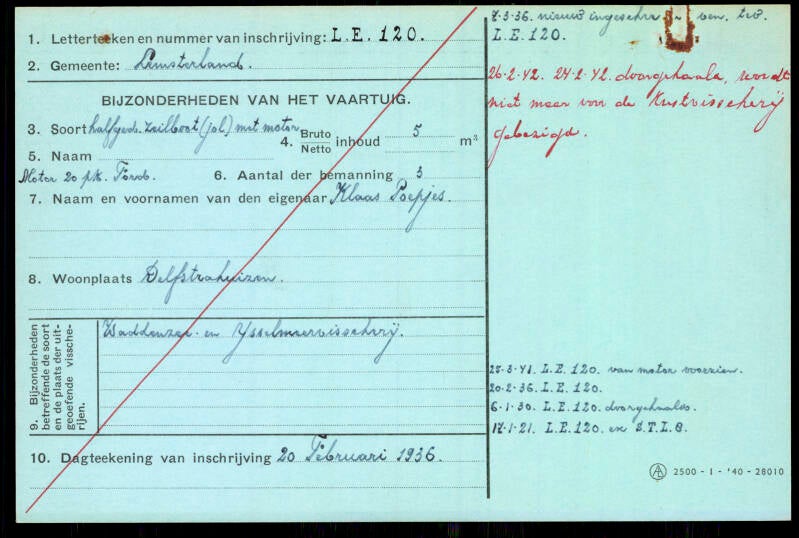 1. Letterteeken en nummer van inschrijving: L.E. 120.
2. Gemeente: Lemsterland.
BIJZONDERHEDEN VAN HET VAARTUIG.
3. Soort halfged. zeilboot (jol) met motor
4. Bruto Netto inhoud 5 m³
5. Naam
Motor 20 pk. Ford.
6. Aantal der bemanning 3
7. Naam en voornamen van den eigenaar Klaas Poepjes.
8. Woonplaats Delfstrahuizen.
9. Bijzonderheden
betreffende de soort
en de plaats der uit-
geoefende vissche-
rijen.
Waddenzee- en Ysselmeervisscherij.
10. Dagteekening van inschrijving 20 Februari 1936.
7.3.36. nieuw ingeschr ven.
L.E. 120.
26-2-42. 24-2-42. doorgehaald, wordt
niet meer voor de Kustvisscherij
gebezigd.
28-3-41. L.E. 120. van motor voorzien.
20-2-36. L.E. 120.
6-1-30. L.E. 120. doorgehaald.
17-1-21. L.E. 120. ex S.T.L. 8.
2500 - 1 - '40 - 28010